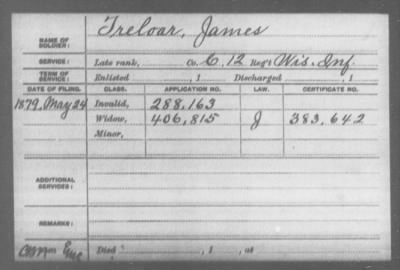 NAME OF SOLDIER: Treloar, James
SERVICE: Late rank, Co. C. 12 Reg't Wis. Inf.
TERM OF SERVICE: Enlisted , 1 Discharged , 1
DATE OF FILING. CLASS. APPLICATION NO. LAW. CERTIFICATE NO.
1879, May 24 Invalid, 288,163
Widow, 406,815 J 383,642
Minor,
ADDITIONAL SERVICES:
REMARKS:
Died , 1 , at